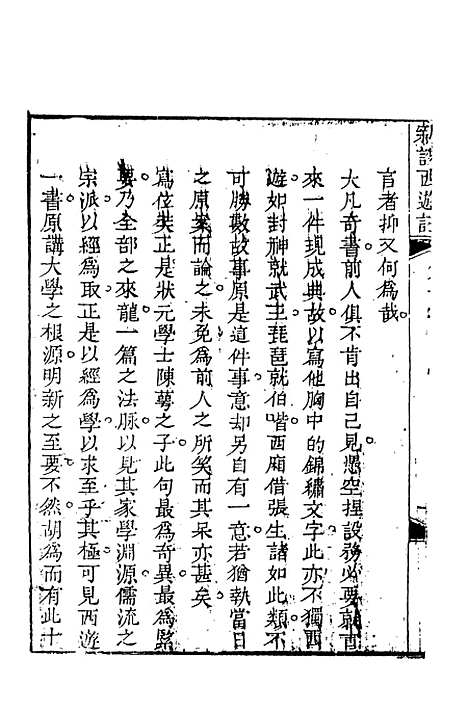 新說西遊記
言者抑又何爲哉
大凡奇書前人俱不肯出自己見憑空捏設務必要就古
來一件現成典故以寫他胸中的錦繡文字此亦不獨西
遊如封神就武王琵琶就伯喈西廂借張生諸如此類不
可勝數故事原是這件事意却另自有一意若猶執當日
之原案而論之未免爲前人之所笑而其呆亦甚矣
爲位矣正是狀元學士陳萼之子此句最爲奇異最爲緊
要乃全部之來龍一篇之法脉以見其家學淵源儒流之
宗派以經爲取正是以經爲學以求至乎其極可見西遊
一書原講大學之根源明新之至要不然胡爲而有此十